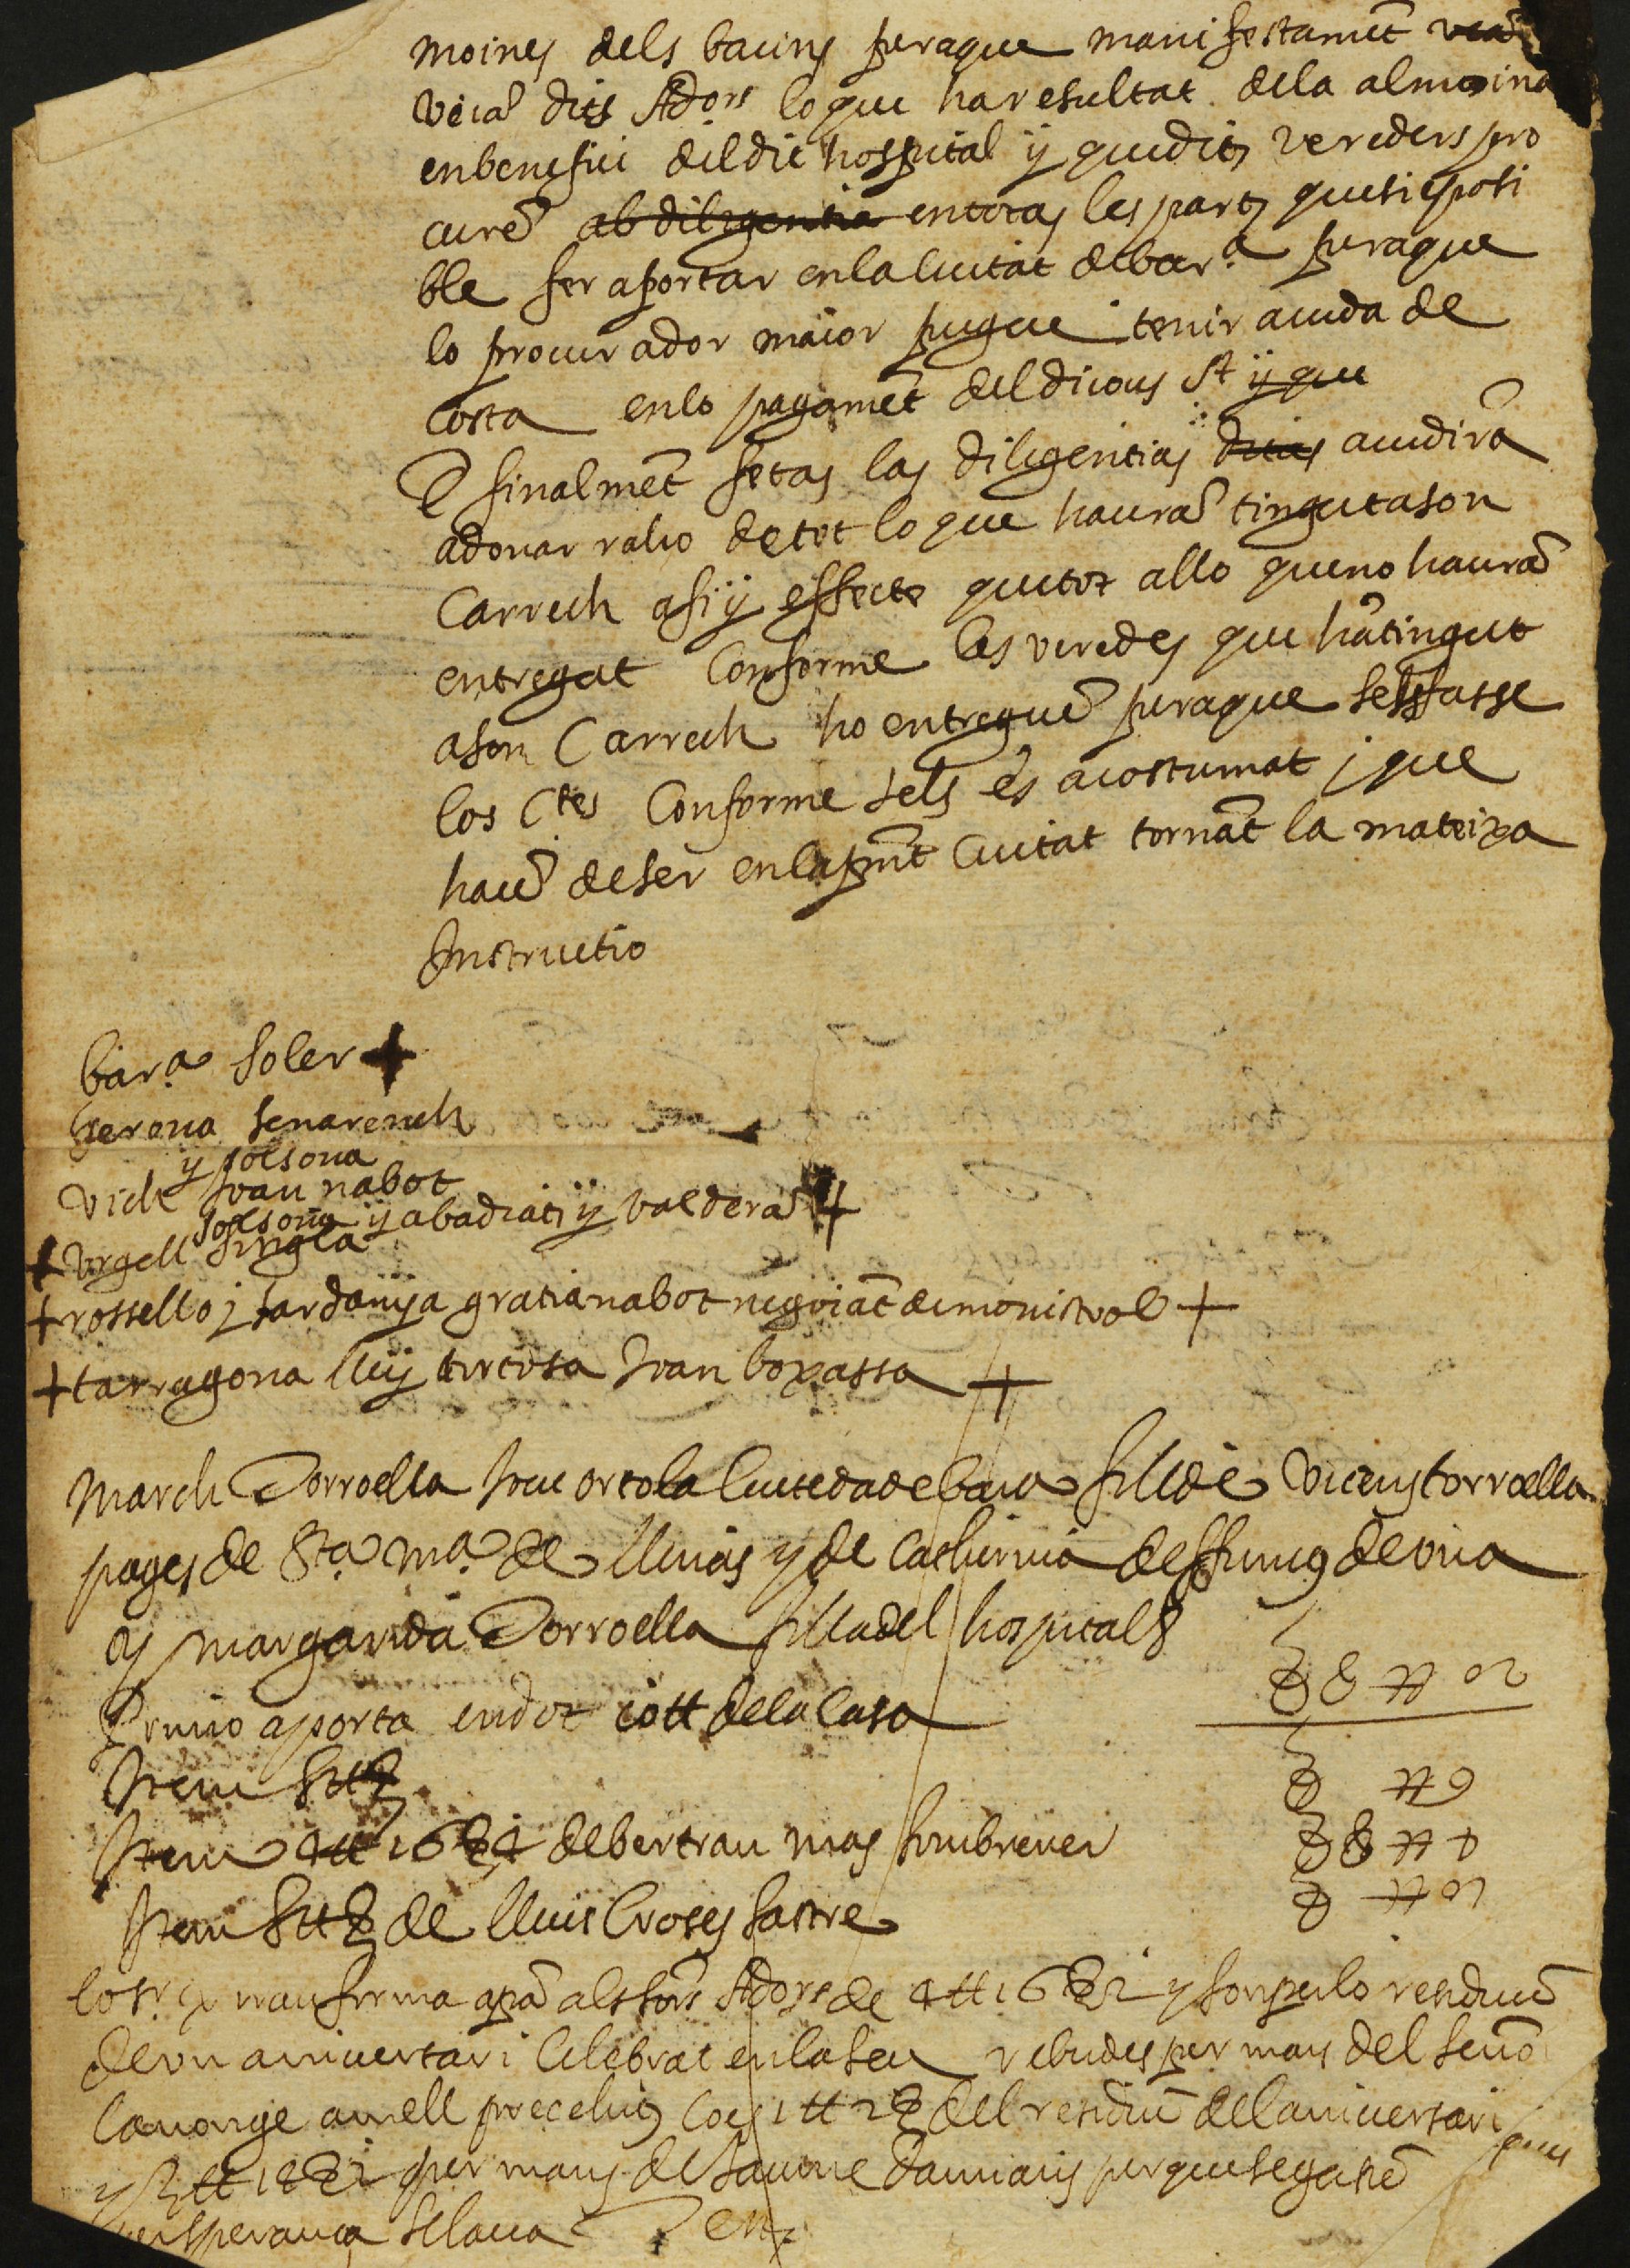 moines dels bacins peraque manifestamēt veiā
veiā dits Ador̄s lo que ha resultat dela almoina
en benefici del dit hospital ÿ que dits vereders pro
curē ab diligentia en totas les parts que sie posi
ble fer aportar en la ciutat de bar.ª peraque
lo procurador maior pugue tenir aiuda de
costa en lo pagamēt del dicous St ÿ que
E finalmēt fetas las diligentias ditas acudirā
adonar raho de tot lo que haurā tingut a son
Carrech afi ÿ effecte que tot allo que no haurā
entregat Conforme les veredes que hā tingut
a son Carrech ho entreguē peraque sels fasse
los Ctes Conforme sels es acostumat j que
hauē de ser en la pñt Ciutat tornāt la mateixa
Instructio
bar.ª soler +
Gerona senarench
y solsona
Vich Joan nabot
solsona ÿ abadiats ÿ valderā +
+ Urgell singla
+ rossello j sardanÿa gratia nabot negotiāt de monistrol +
+ tarragona lleÿ tortosa Joan boxassa +
March Torroella Jove ortola Ciutedà de bar.ª fill de Vicens torroella
pages de Sta. ma. de lluias y de Catherina deffuncts de una
y margarida Torroella filla del hospital &
Primo aporta en dot 10 ℔ de la Casa
Item 5 ℔
Item 4 ℔ 16 ß 4 de bertran mas sombrerer
Item 5 ℔ de lluis Croses sastre
firma apā als sors Adors de 4 ℔ 16 ß 2 y son per lo residuū
de un aniversari Celebrat en la seu rebudes per mans del señor
Canonge amell 1 ℔ 2 ß del residuū del aniversari
per mans de Jaume damians perque segane
sperança